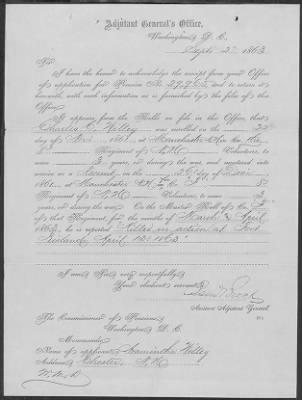 Adjutant General's Office,
Washington, D. C.
Sept. 2d 1863
Sir:
I have the honor to acknowledge the receipt from your Office
of application for Pension No. and to return it
herewith, with such information as is furnished by the files of this
Office.
It appears from the Rolls on file in this Office, that
Charles C. Kelley was enrolled on the
day of 1861, at Manchester in Co.
8" Regiment of N.H. Volunteers, to
serve 3 years, or during the war, and mustered into
service as a on the day of Decr
1861, at Manchester N.H. in Co. 8"
Regiment of N.H. Volunteers, to serve 3
years, or during the war. On the Muster Roll of Co.
of that Regiment, for the months of March & April
1863, he is reported "Killed in action at Fort
Bisland, April 13. 1863."
I am, Sir, very respectfully,
Your obedient servant,
Assistant Adjutant General
The Commissioner of Pensions,
Washington, D. C.
Memoranda:
Name of applicant, Samantha Kelley
Address, Chester N.H.